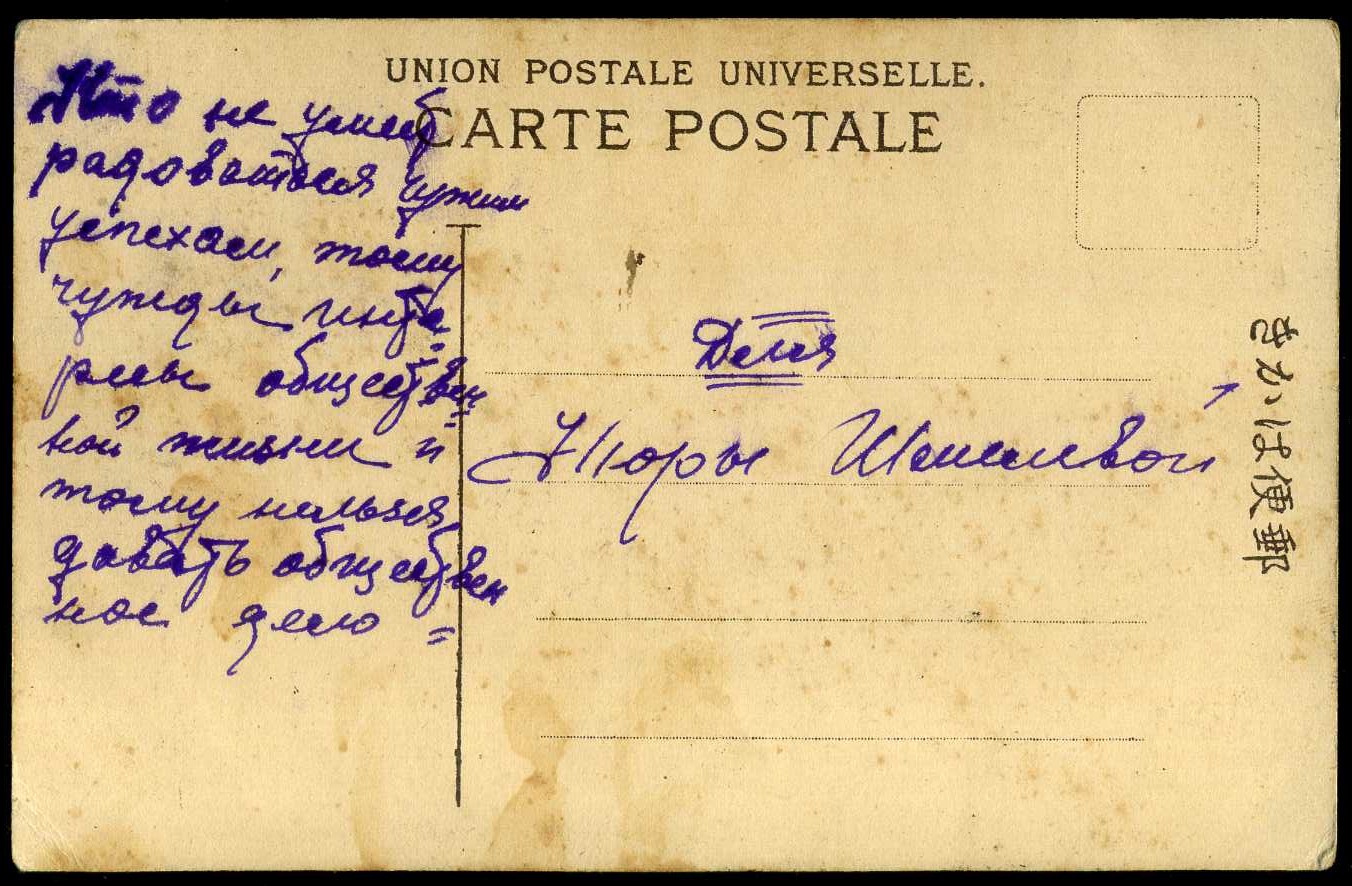 UNION POSTALE UNIVERSELLE.
CARTE POSTALE
Кто не умеет
радоваться чужим
успехам, тому
чужды инте=
ресы обществен=
ной жизни и
тому нельзя
давать обществен
ное дело =
Для
Норы
きかは便郵